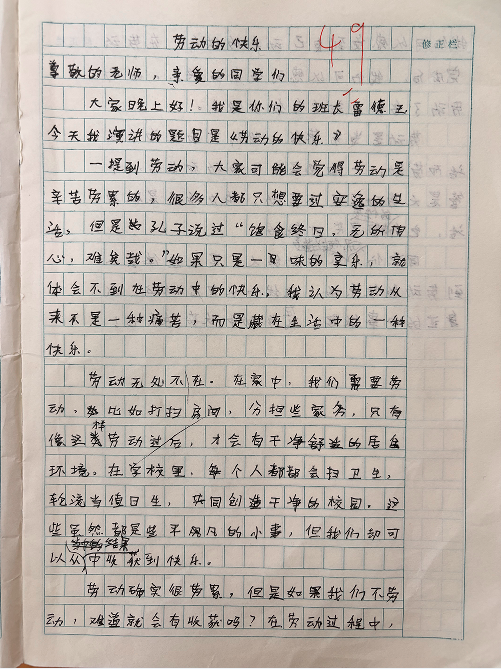 劳动的快乐
49
修正栏
尊敬的老师，亲爱的同学们
大家晚上好！我是你们的班长雷德
今天我演讲的题目是《劳动的快乐》
一提到劳动，大家可能会觉得劳动是
辛苦劳累的，很多人都只想要过安逸的生
活，但是孔子说过“饱食终日，无所用
心，难矣哉。”如果只是一味的享乐，就
体会不到在劳动中的快乐。我认为劳动从
来不是一种痛苦，而是藏在生活中的一种
快乐。
劳动无处不在。在家中，我们需要劳
动，比如打扫房间，分担些家务，只有
像这样劳动过后，才会有干净舒适的居住
环境。在学校里，每个人都都会扫卫生，
轮流当值日生，共同创造干净的校园。这
些虽然都是些不凡的小事，但我们却可
以从中收获到快乐。
劳动确实很劳累，但是如果我们不劳
动，难道就会有收获吗？在劳动过程中，